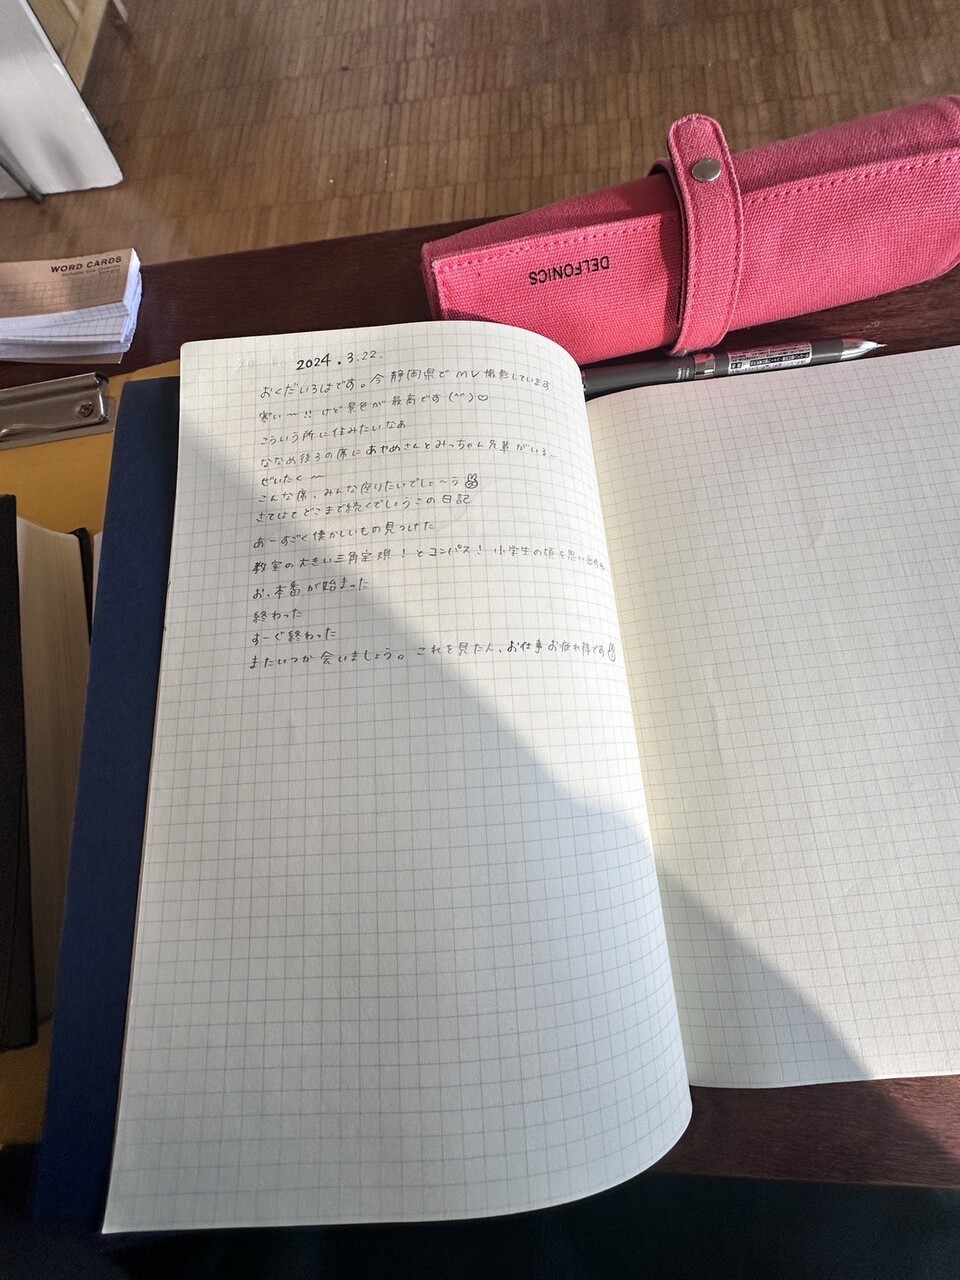 WORD CARDS
DELFONICS
2024.3.22.
おくだいろはです。今静岡県でMV撮影しています
寒い〜!! けど景色が最高です(^^)♡
こういう所に住みたいなあ
ななめ後ろの席にあやめさんとみっちゃん先輩がいる...
ぜいたく〜
こんな席、みんな座りたいでしょ〜う
さてはてどこまで続くでしょうこの日記
あーすごく懐かしいもの見つけた
教室の大きい三角定規!とコンパス! 小学生の頃を思い出すな
お、本番が始まった
終わった
すーぐ終わった
またいつか会いましょう。これを見た人、お仕事お疲れ様です